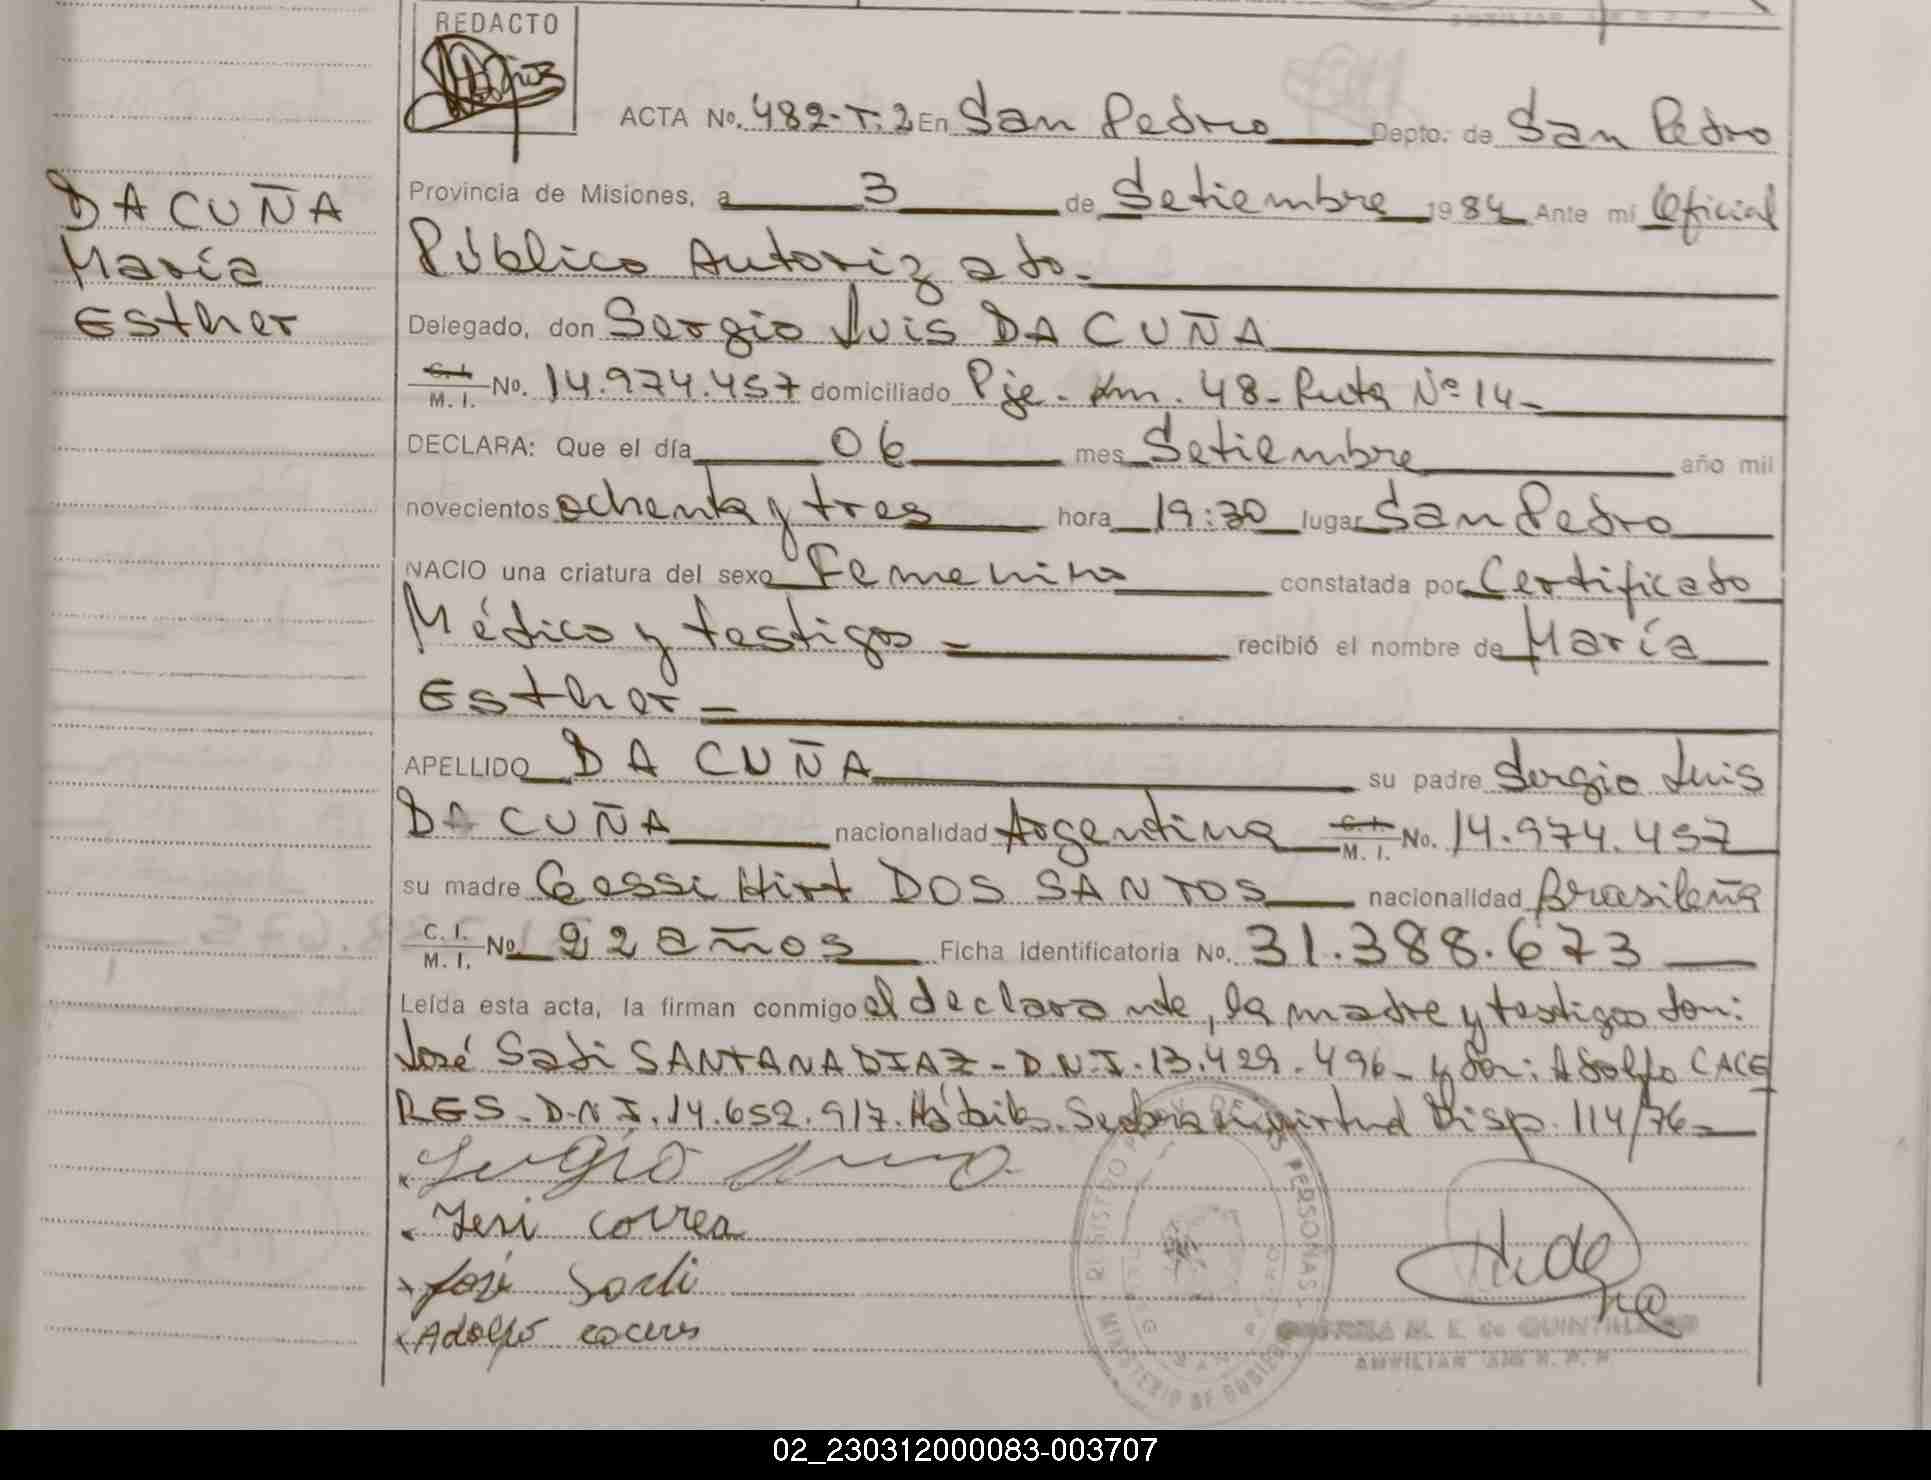 REDACTO
ACTA No. 482-T.2 En San Pedro Depto. de San Pedro
Provincia de Misiones, a 3 de Setiembre 1984 Ante mí Oficial
Público Autorizado.-
DA CUÑA
María
Esther
Delegado, don Sergio Luis DA CUÑA
C. I. M. I. No. 14.974.457 domiciliado Pje. Km. 48- Ruta Nº 14-
DECLARA: Que el día 06 mes Setiembre año mil
novecientos ochenta y tres hora 19:30 lugar San Pedro
NACIO una criatura del sexo Femenino constatada por Certificado
Médico y testigos - recibió el nombre de María
Esther -
APELLIDO DA CUÑA su padre Sergio Luis
DA CUÑA nacionalidad Argentina C. I. M. I. No. 14.974.457
su madre Gessi Hirt DOS SANTOS nacionalidad Brasileña
C. I. M. I. No 22 años Ficha identificatoria No. 31.388.673
Leída esta acta, la firman conmigo el declarante, la madre y testigos don:
José Sadi SANTANA DIAZ - D.N.I. 13.429.496- y don: Adolfo CACE
RES - D.N.I. 14.652.917. Hábiles. Se labra en virtud Disp. 114/76-
Sergio
Jesi correa
José Sadi
Adolfo caceres
REGISTRO PROV. DE LAS PERSONAS
MINISTERIO DE GOBIERNO
M. E. de QUINTILLANO
AUXILIAR
02_230312000083-003707